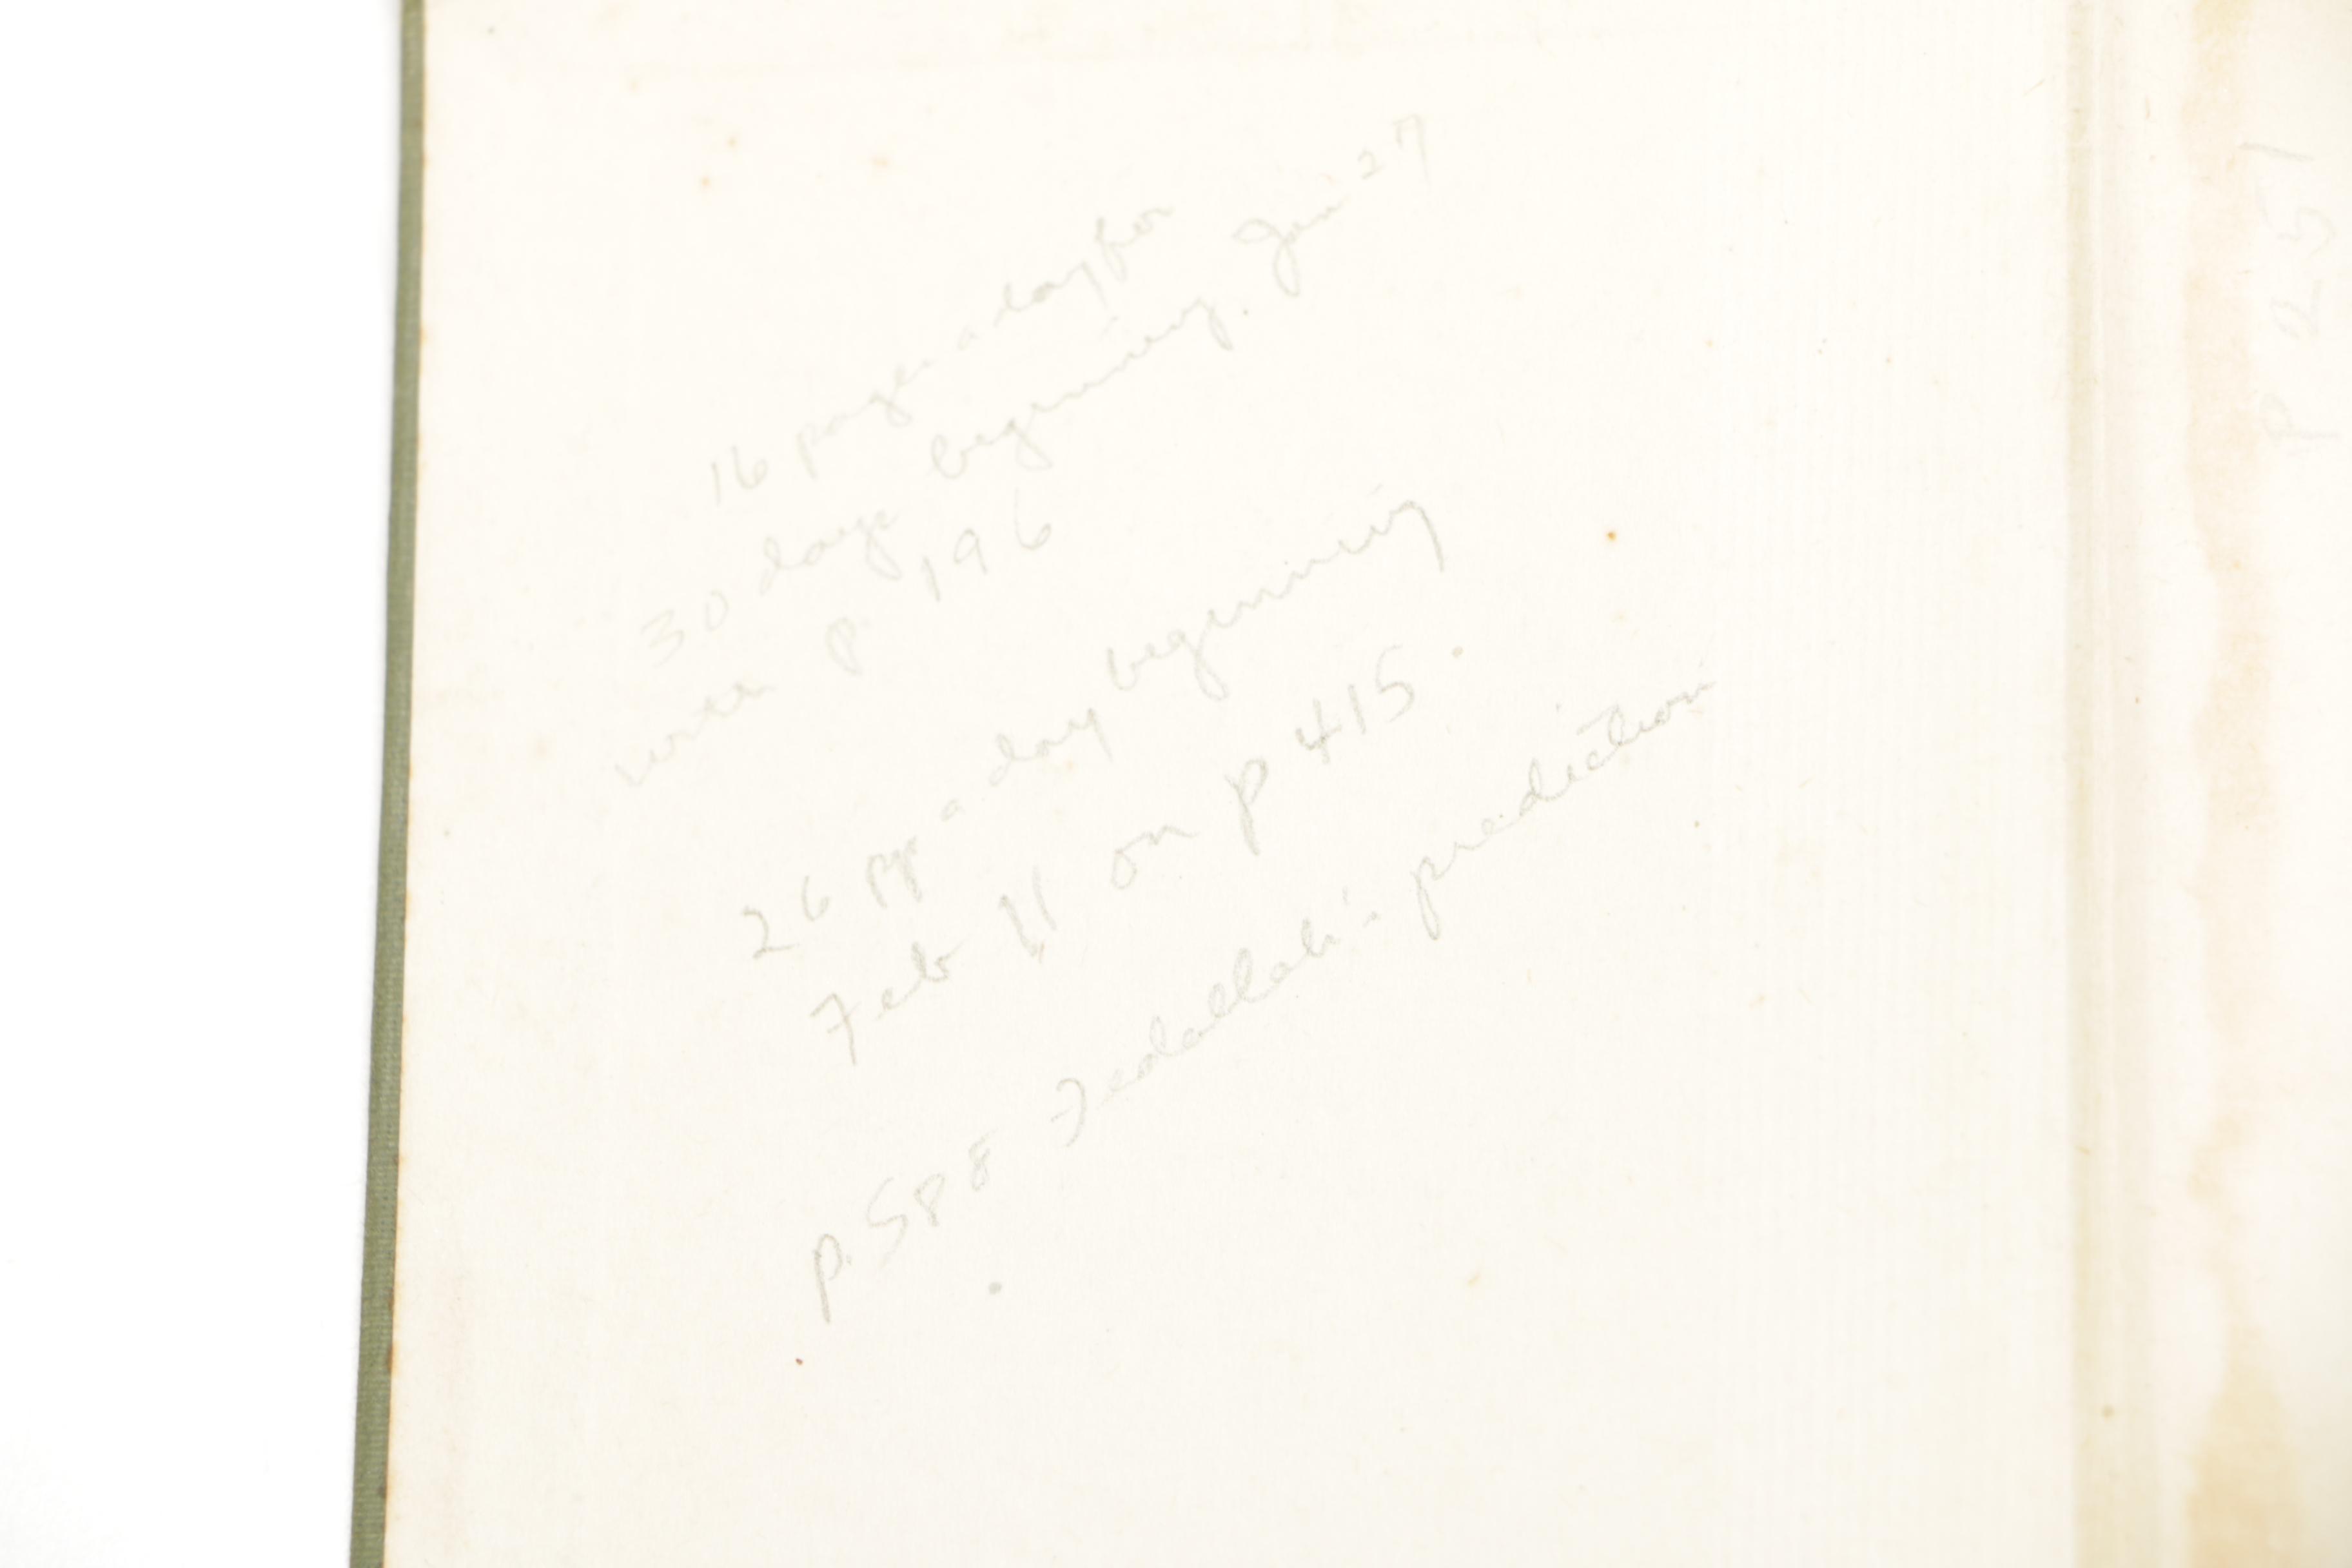 16 pages a day for
30 days beginning Jan 27
with p 196
26 pp a day beginning
Feb 11 on p 415.
p. 588 Fedallah's prediction
p 251